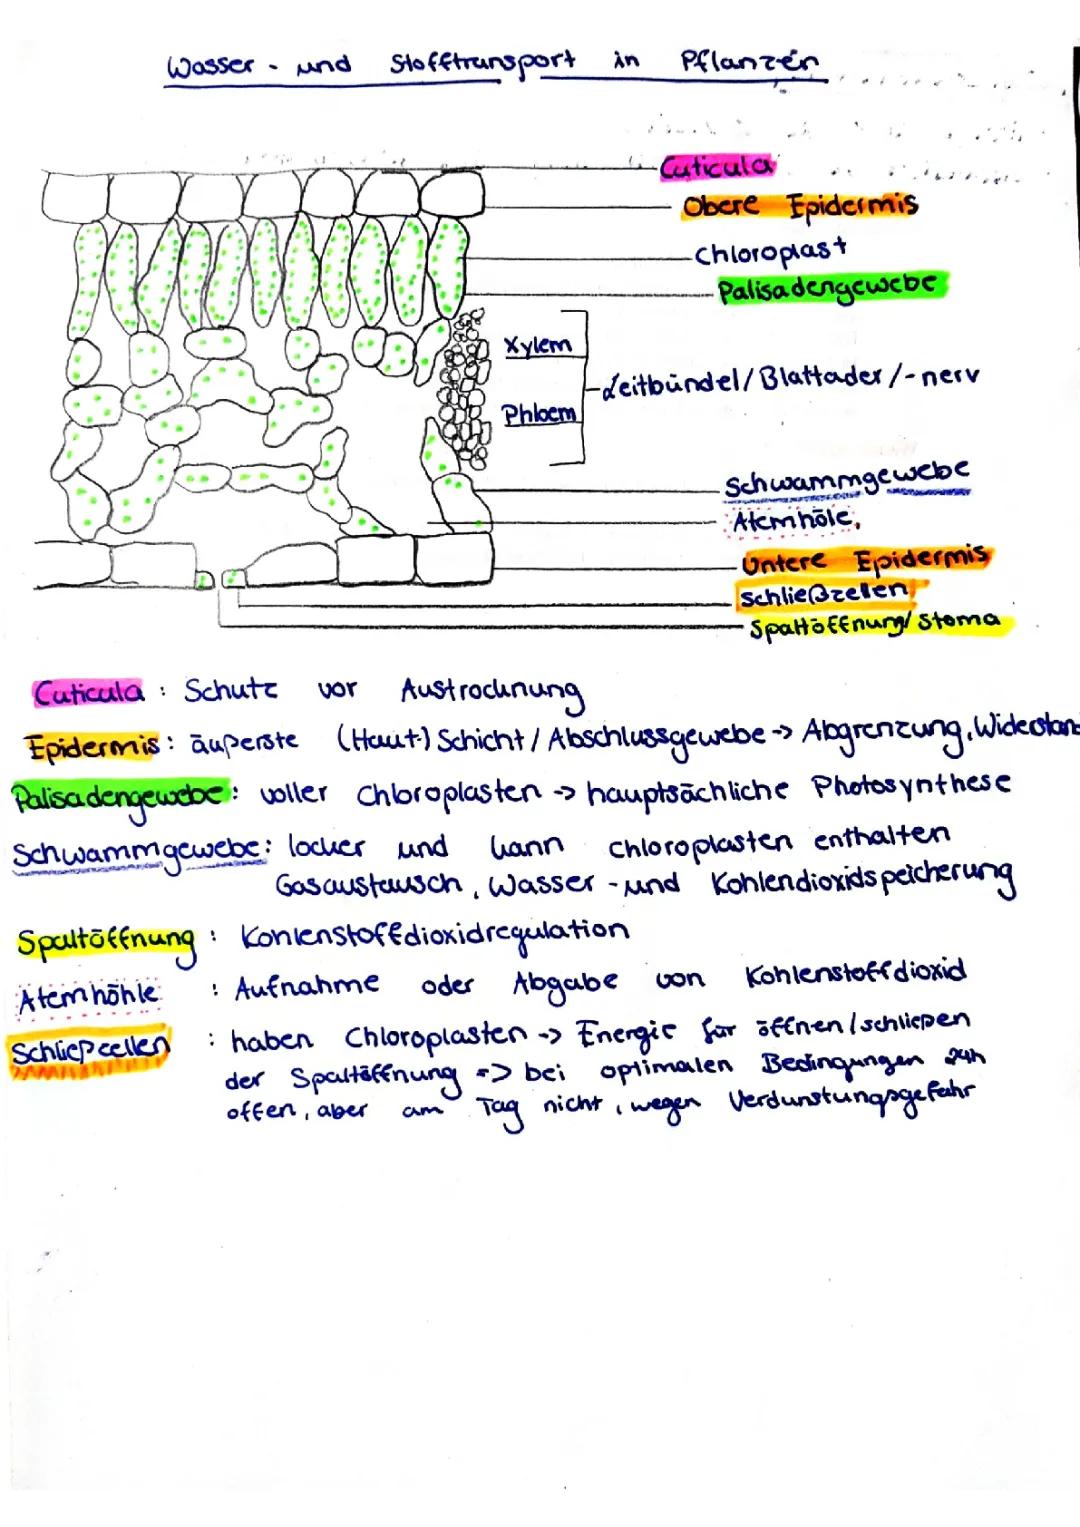 Wasser- und Stofftransport in Pflanzen
Cuticula
Obere Epidermis
Chloroplast
Palisadengewebe
Xylem
Leitbündel/Blattader/-nerv
Phloem
Schwammgewebe
Atemhöle,
Untere Epidermis
Schließzellen
Spaltöffnung/Stoma
Cuticula: Schutz vor Austrocknung
Epidermis: äußerste (Haut-)Schicht/Abschlussgewebe -> Abgrenzung, Widerstan
Palisadengewebe: voller Chloroplasten -> hauptsächliche Photosynthese
Schwammgewebe: locker und kann Chloroplasten enthalten
Gasaustausch, Wasser-und Kohlendioxidspeicherung
Spaltöffnung: Kohlenstoffdioxidregulation
Atemhöhle: Aufnahme oder Abgabe von Kohlenstoffdioxid
Schließzellen: haben Chloroplasten -> Energie für öffnen/schließen
der Spaltöffnung => bei optimalen Bedingungen 24h
offen, aber am Tag nicht, wegen Verdunstungsgefahr